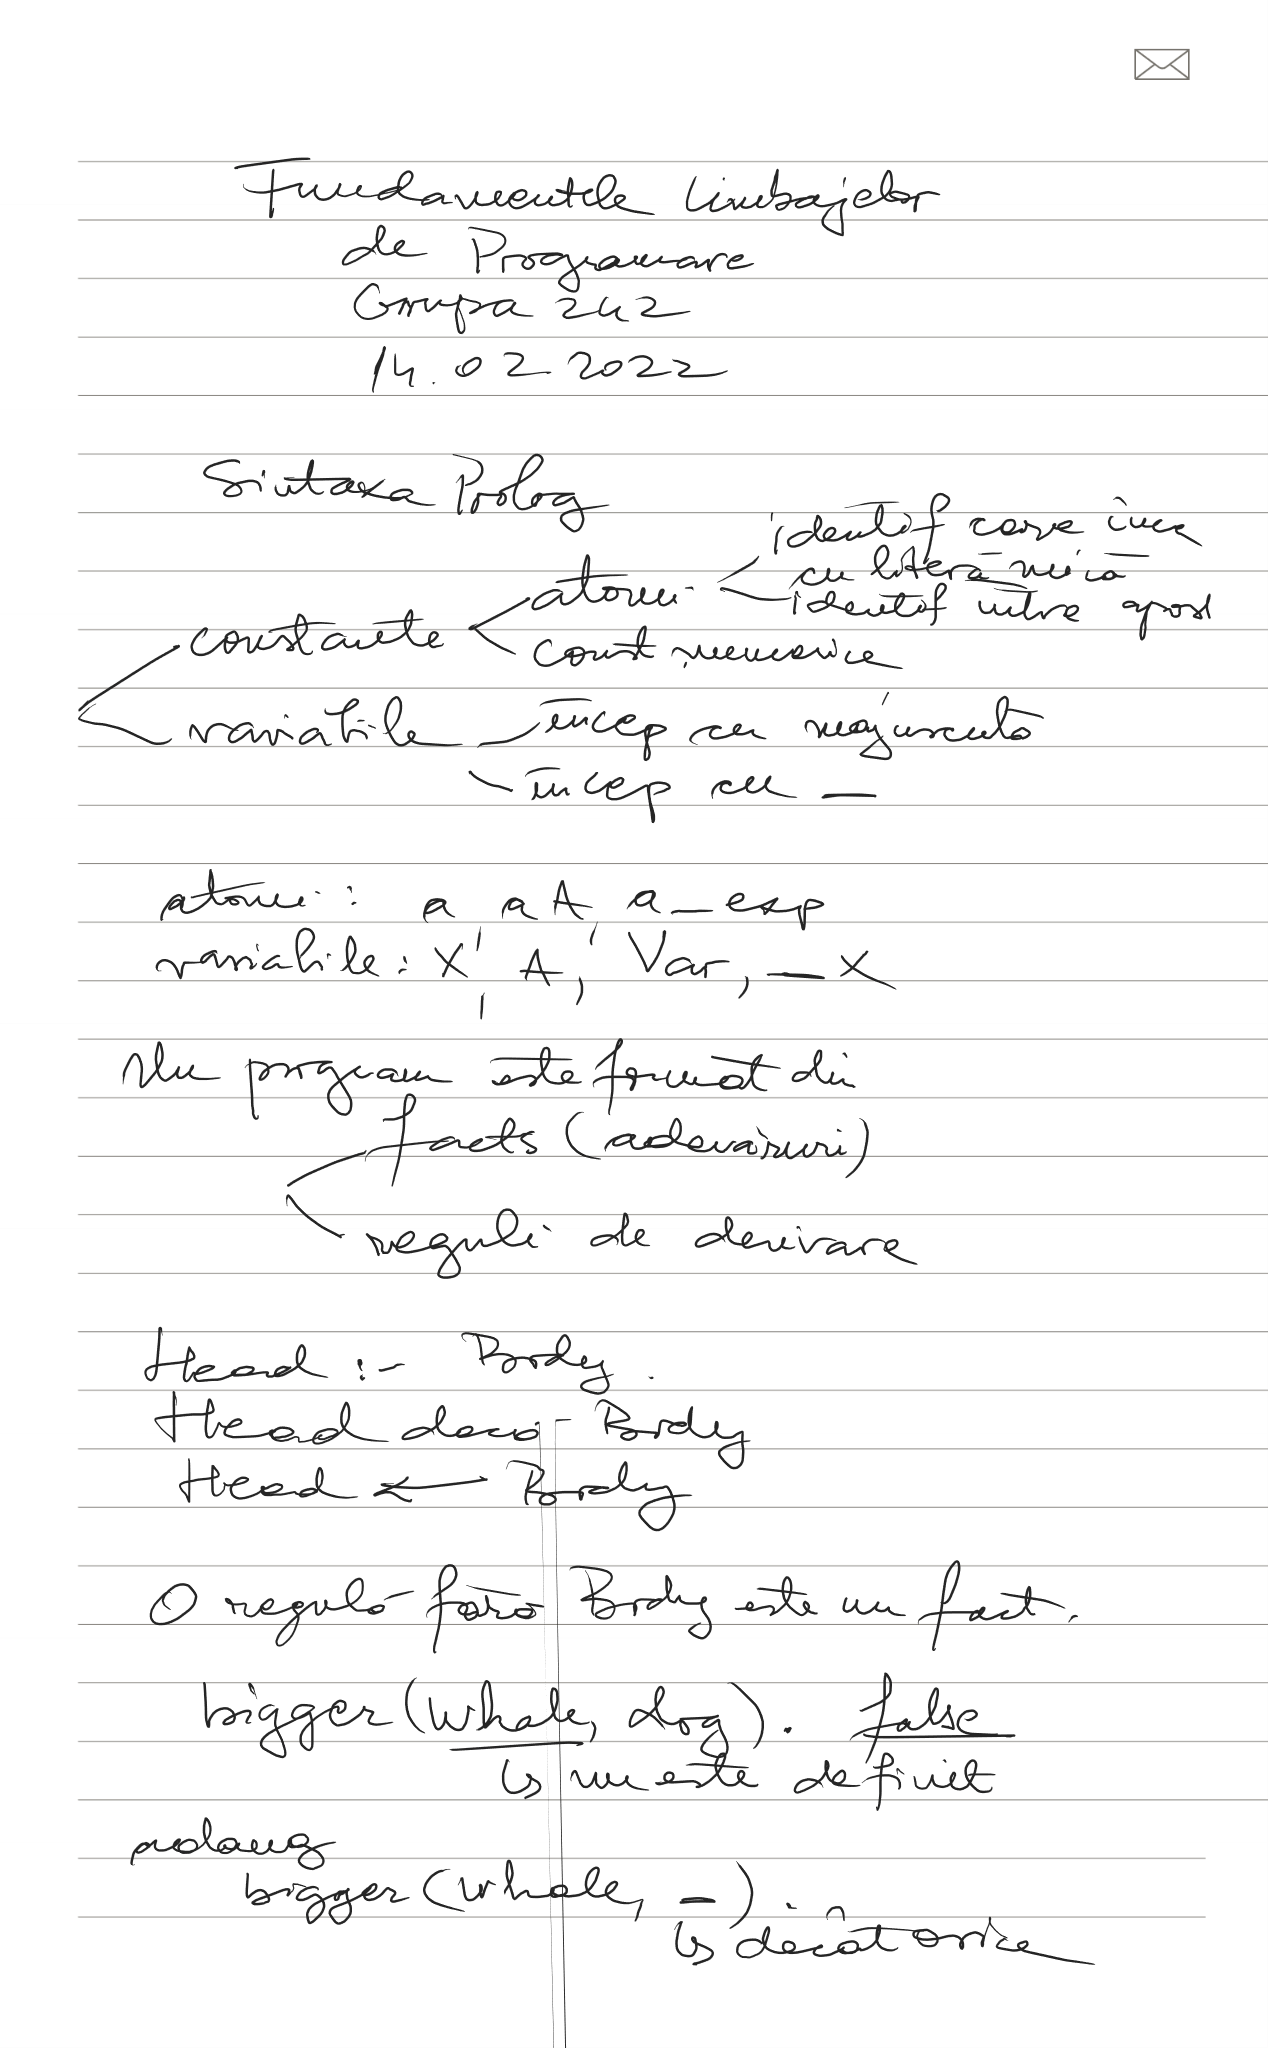 Fundamentele limbajelor
de Programare
Grupa 242
14.02.2022
Sintaxa Prolog
identif care înc
cu literă mică
atomi
identif între apost
constante
const numerice
variabile încep cu majusculă
încep cu _
atomi: a, aA, a_exp
variabile: X, A, Var, _X
Un program este format din
facts (adevăruri)
reguli de derivare
Head :- Body.
Head dacă Body
Head ← Body
O regulă fără Body este un fact.
bigger(whale, dog). false
↳ nu este definit
adaug
bigger(whale, _)
↳ decât orice